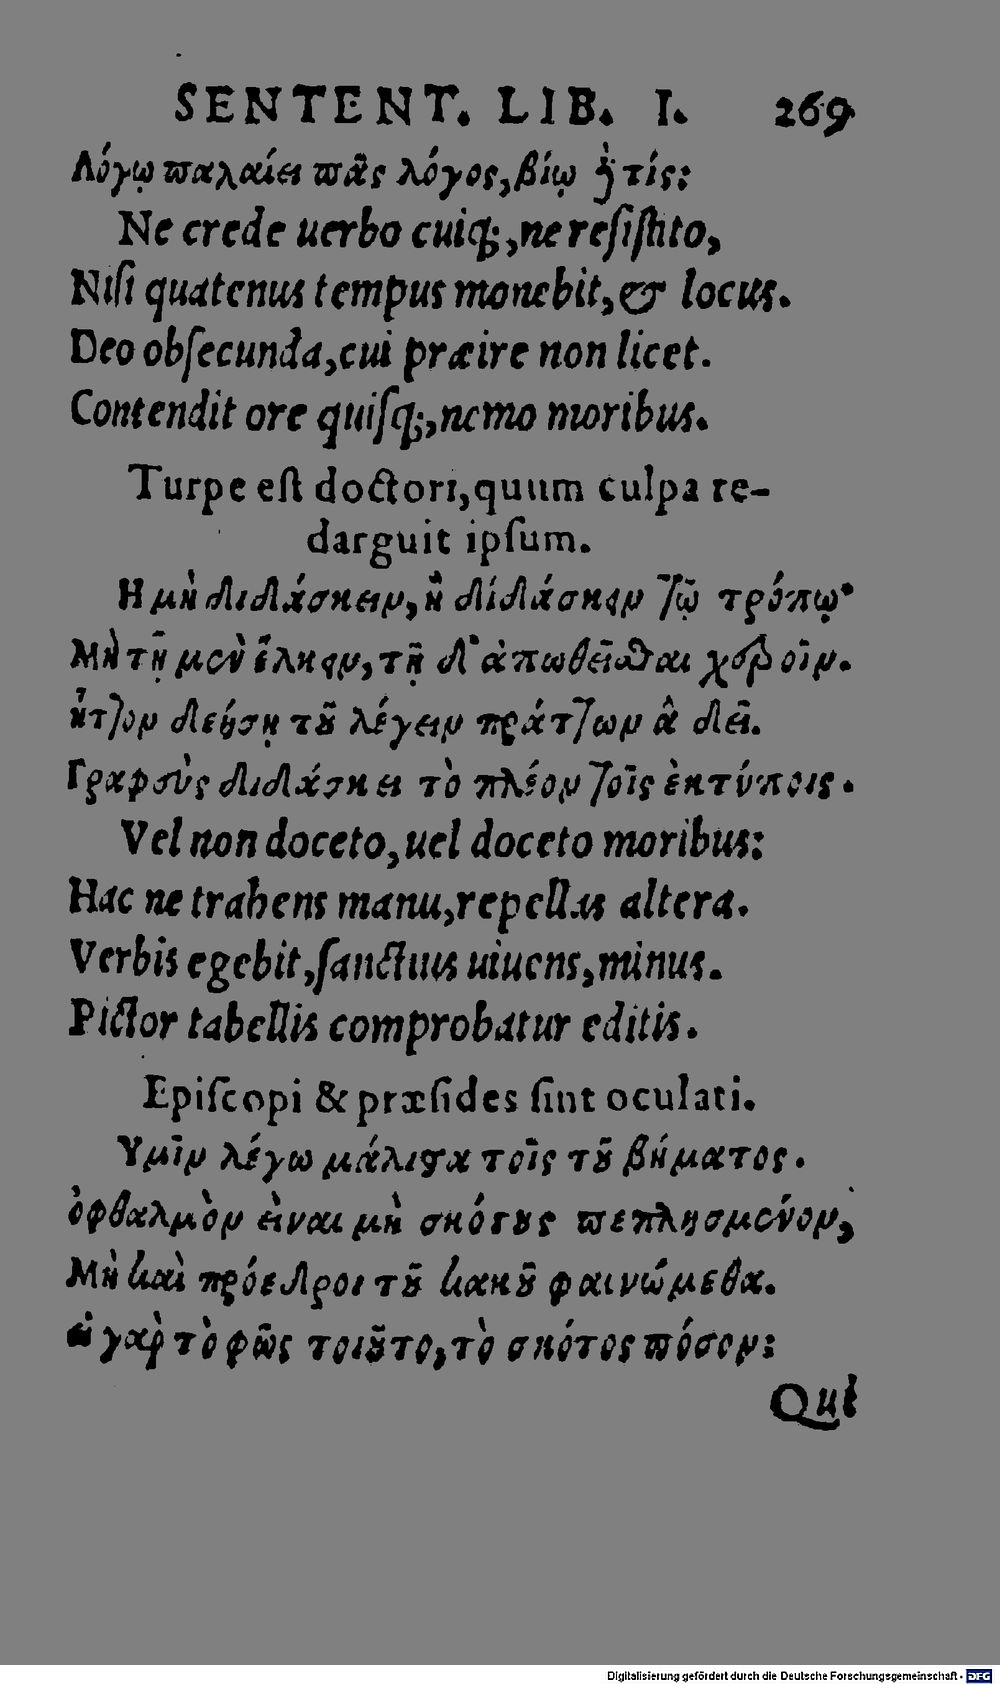 SENTENT. LIB. I. 269
Λόγῳ παλαίει πᾶς λόγος, βίῳ ȣ̓ τίς:
Ne crede uerbo cuiq;, ne resiſtito,
Niſi quatenus tempus monebit, & locus.
Deo obſecunda, cui præire non licet.
Contendit ore quiſq;, nemo moribus.
Turpe eſt doctori, quum culpa re-
darguit ipſum.
Η μὴ διδάσκειν, ἢ διδάσκειν τῷ τρόπῳ·
Μὴ τῇ μὲν ἕλκειν, τῇ δ' ἀπωθεῖσθαι χεροῖν.
ἧττον δεήσῃ τȣ͂ λέγειν πράττων ἃ δεῖ.
Γραφεὺς διδάσκει τὸ πλέον τοῖς ἐκτύποις.
Vel non doceto, uel doceto moribus:
Hac ne trahens manu, repellas altera.
Verbis egebit, ſanctius uiuens, minus.
Pictor tabellis comprobatur editis.
Epiſcopi & præſides ſint oculati.
Υμῖν λέγω μάλιϛα τοῖς τȣ͂ βήματος.
ὀφθαλμὸν εἶναι μὴ σκότȣς πεπλησμένον,
Μὴ καὶ πρόεδροι τȣ͂ κακȣ͂ φαινώμεθα.
εἰ γὰρ τὸ φῶς τοιȣ͂το, τὸ σκότος πόσον:
Qui
Digitalisierung gefördert durch die Deutsche Forschungsgemeinschaft - DFG